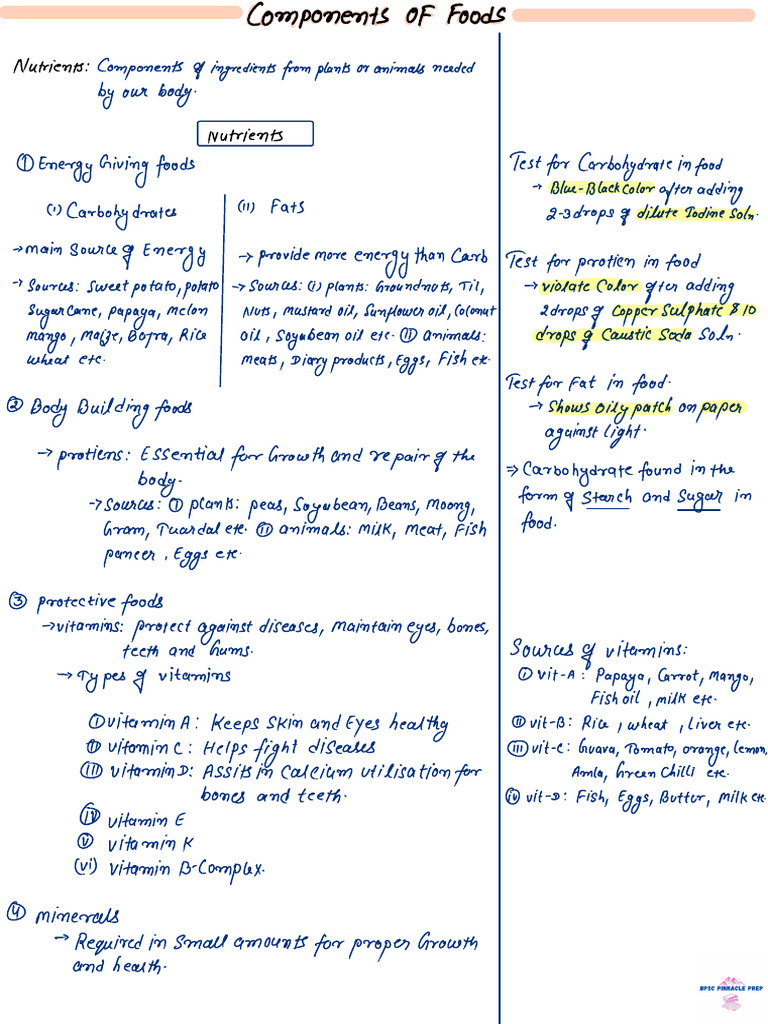 Components OF Foods
Nutrients: Components of ingredients from plants or animals needed
by our body.
Nutrients
① Energy Giving foods
(i) Carbohydrates
→ main Source of Energy
→ Sources: Sweet potato, potato
Sugarcane, papaya, melon
mango, Maize, Bajra, Rice
wheat etc.
(ii) Fats
→ provide more energy than Carb
→ Sources: (i) plants: Groundnuts, Til,
Nuts, mustard oil, Sunflower oil, Coconut
oil, Soyabean oil etc. (ii) animals:
meats, Diary products, Eggs, Fish etc.
② Body Building foods
→ protiens: Essential for Growth and repair of the
body.
→ Sources: (i) plants: peas, Soyabean, Beans, Moong,
Gram, Tuardal etc. (ii) animals: Milk, Meat, Fish
paneer, Eggs etc.
③ protective foods
→ vitamins: protect against diseases, Maintain eyes, bones,
teeth and Gums.
→ Types of vitamins
(i) vitamin A: Keeps Skin and Eyes healthy
(ii) vitamin C: Helps fight diseases
(iii) vitamin D: Assits in Calcium utilisation for
bones and teeth.
(iv) vitamin E
(v) vitamin K
(vi) vitamin B-Complex.
④ minerals
→ Required in Small amounts for proper Growth
and health.
Test for Carbohydrate in food
→ Blue-Black Color after adding
2-3 drops of dilute Iodine Soln.
Test for protien in food
→ violate Color after adding
2 drops of Copper Sulphate & 10
drops of Caustic Soda Soln.
Test for Fat in food.
→ Shows oily patch on paper
against light.
⇒ Carbohydrate found in the
form of Starch and Sugar in
food.
Sources of vitamins:
(i) vit-A: Papaya, Carrot, Mango,
Fish oil, milk etc.
(ii) vit-B: Rice, wheat, liver etc.
(iii) vit-C: Guava, Tomato, orange, lemon,
Amla, Green Chilli etc.
(iv) vit-D: Fish, Eggs, Butter, Milk etc.
BPSC PINNACLE PREP